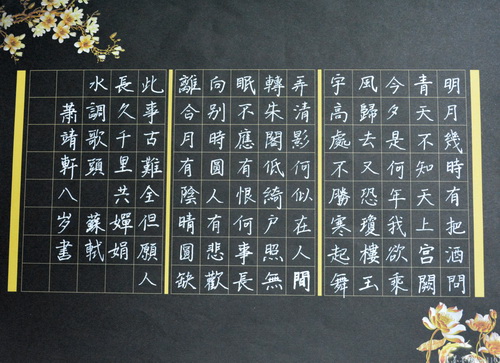 明月幾時有把酒問
青天不知天上宮闕
今夕是何年我欲乘
風歸去又恐瓊樓玉
宇高處不勝寒起舞
弄清影何似在人間
轉朱閣低綺户照無
眠不應有恨何事長
向别時圓人有悲歡
離合月有陰晴圓缺
此事古難全但願人
長久千里共嬋娟
水調歌頭 蘇軾
蕭靖軒八岁書